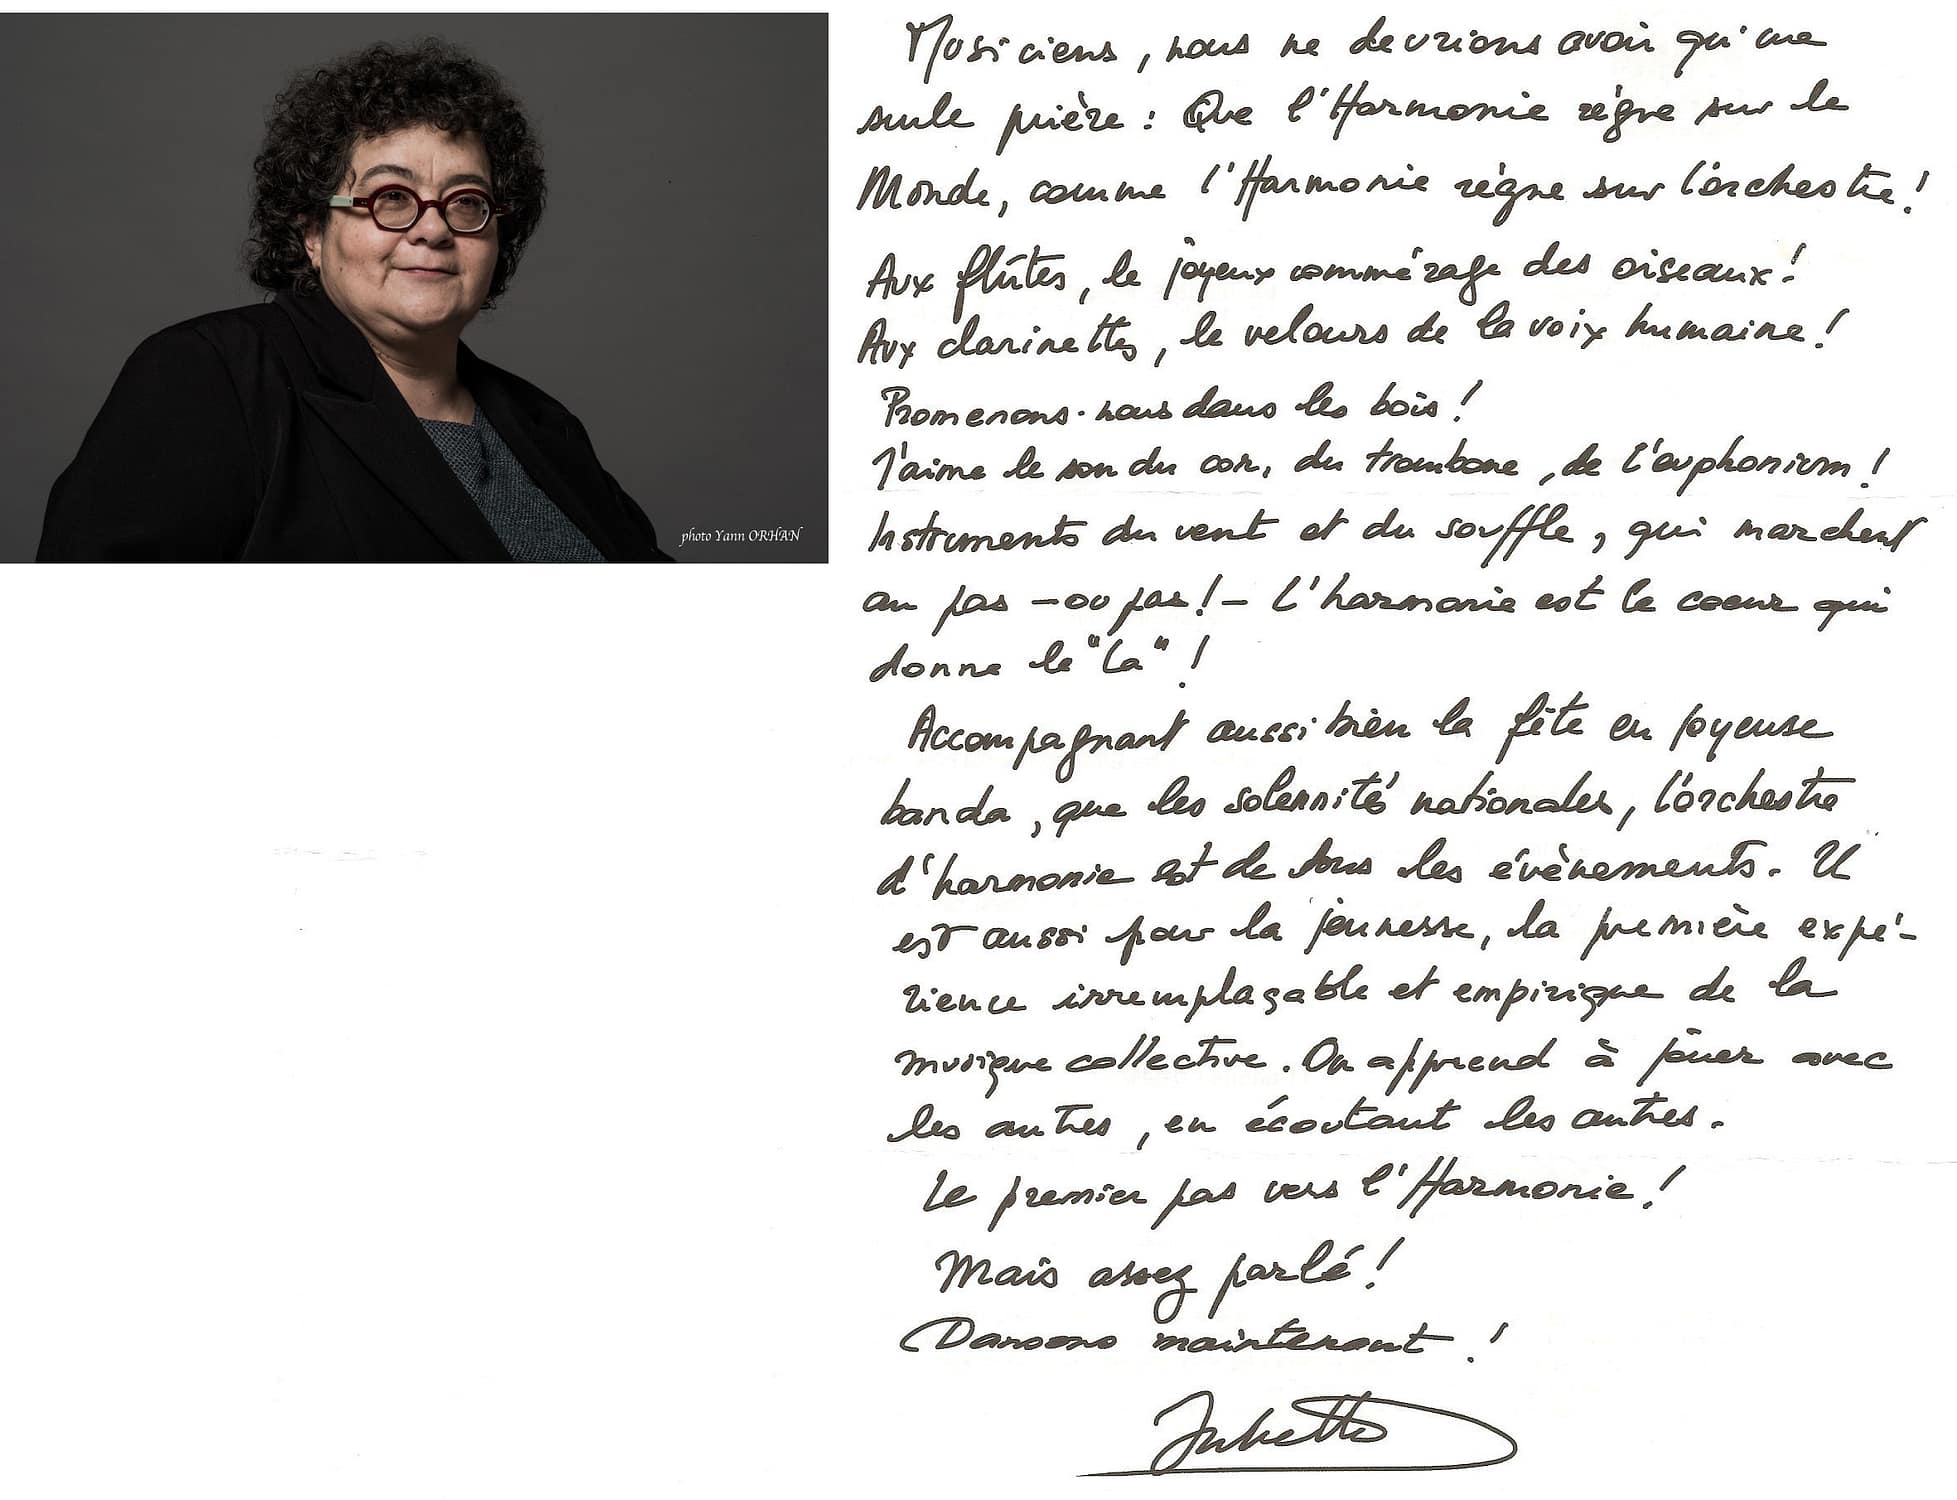 photo Yann ORHAN
Musiciens, nous ne devrions avoir qu'une
seule prière : Que l'Harmonie règne sur le
Monde, comme l'Harmonie règne sur l'orchestre !
Aux flûtes, le joyeux commérage des oiseaux !
Aux clarinettes, le velours de la voix humaine !
Promenons-nous dans les bois !
J'aime le son du cor, du trombone, de l'euphonium !
Instruments du vent et du souffle, qui marchent
au pas - ou pas ! - L'harmonie est le coeur qui
donne le "la" !
Accompagnant aussi bien la fête en joyeuse
banda, que les solennités nationales, l'orchestre
d'harmonie est de tous les évènements. Il
est aussi pour la jeunesse, la première expé-
rience irremplaçable et empirique de la
musique collective. On apprend à jouer avec
les autres, en écoutant les autres.
Le premier pas vers l'Harmonie !
Mais assez parlé !
Dansons maintenant !
Juliette